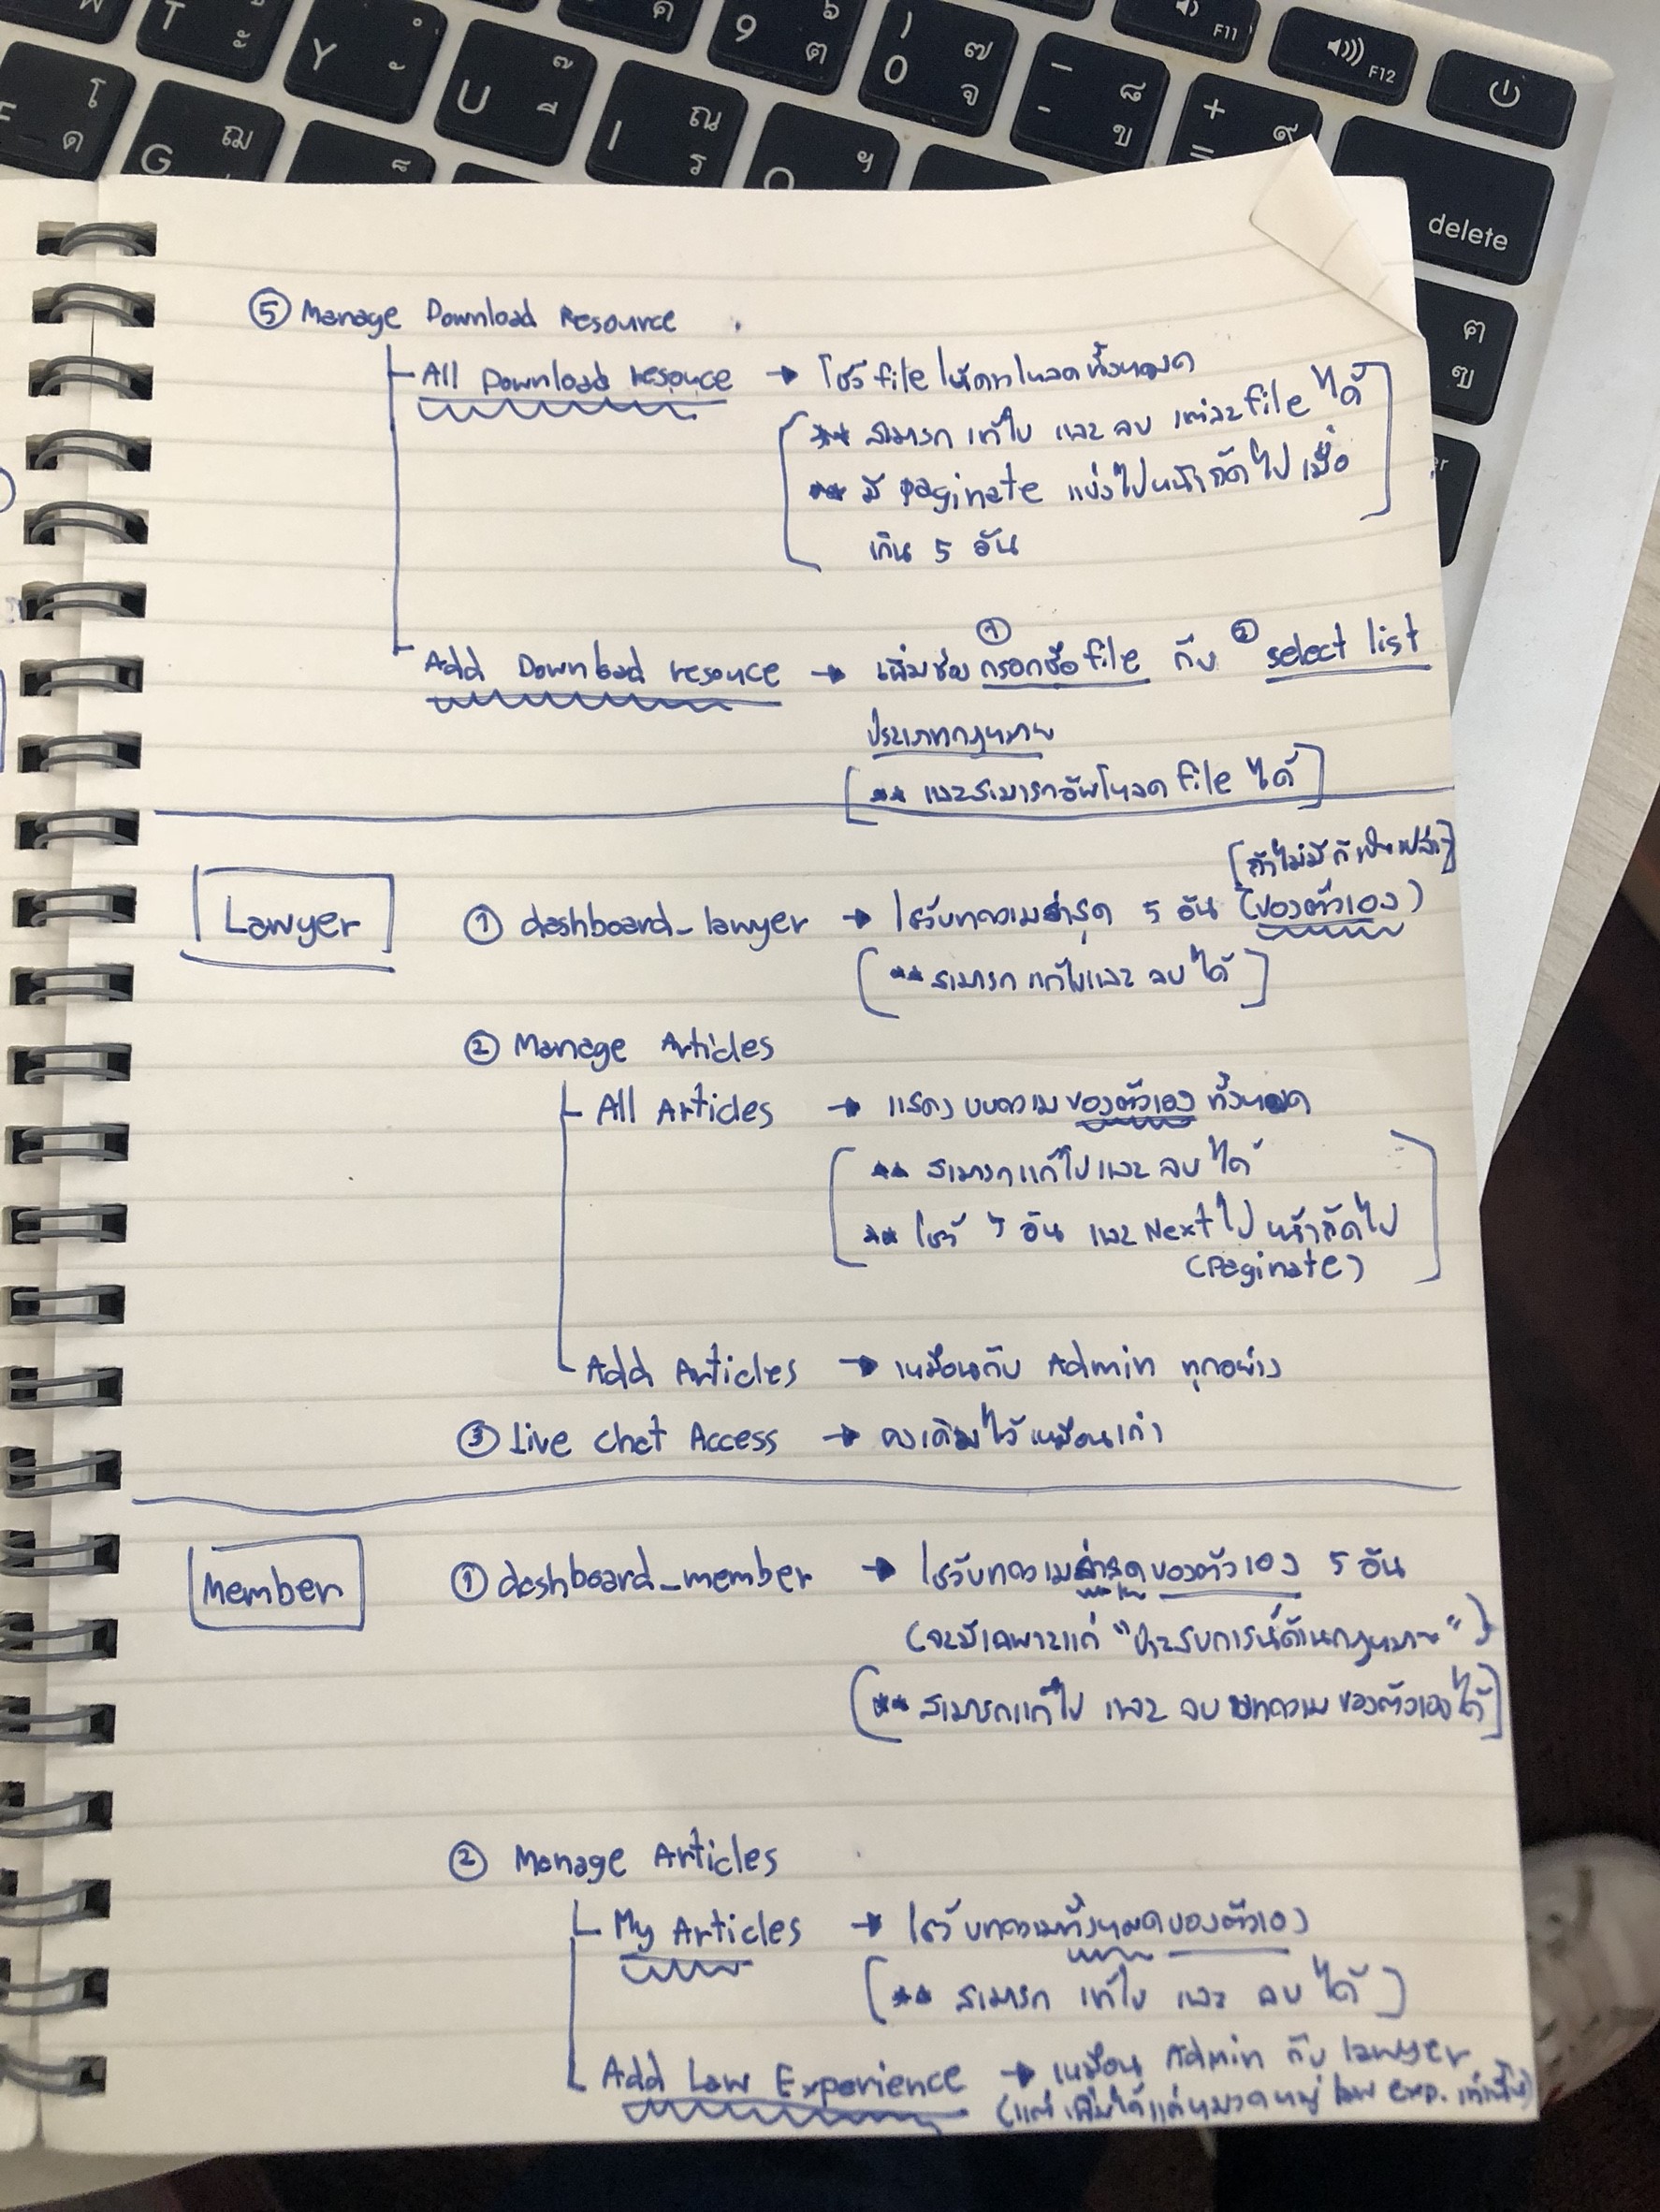 T ั ะ
Y ํ ั
U ๊ ี
ค
9 ๖ ต
) ๗ 0 จ
_ ๘ - ข
+ ๙ =
F11
F12
โ ด
G ฌ
็
I ณ ร
O ฯ
delete
ฅ ฃ
⑤ Manage Download Resource
All Download resouce → โชว์ file ให้ดาวโหลดทั้งหมด
** สามารถ แก้ไข และ ลบ แต่ละ file ได้
** มี paginate แบ่งไปหน้าถัดไป เมื่อ
เกิน 5 อัน
Add Download resouce → เพิ่มช่อง ① กรอกชื่อ file กับ ② select list
ประเภทกฎหมาย
[** และสามารถอัพโหลด file ได้]
[ถ้าไม่มี ก็เป็นเปล่า]
Lawyer ① dashboard_lawyer → โชว์บทความล่าสุด 5 อัน (ของตัวเอง)
[** สามารถ แก้ไขและ ลบ ได้]
② Manage Articles
All Articles → แสดง บทความ ของตัวเอง ทั้งหมด
** สามารถแก้ไข และ ลบ ได้
** โชว์ 5 อัน และ Next ไป หน้าถัดไป
(Paginate)
Add Articles → เหมือนกับ Admin ทุกอย่าง
③ Live Chat Access → คงเดิมไว้เหมือนเก่า
Member ① dashboard_member → โชว์บทความล่าสุดของตัวเอง 5 อัน
(จะมีเฉพาะแค่ "ประสบการณ์ด้านกฎหมาย")
[** สามารถแก้ไข และ ลบ บทความ ของตัวเองได้]
② Manage Articles
My Articles → โชว์ บทความทั้งหมดของตัวเอง
[** สามารถ แก้ไข และ ลบ ได้]
Add Law Experience → เหมือน Admin กับ lawyer
(แต่ เพิ่มได้แค่หมวดหมู่ law exp. เท่านั้น)